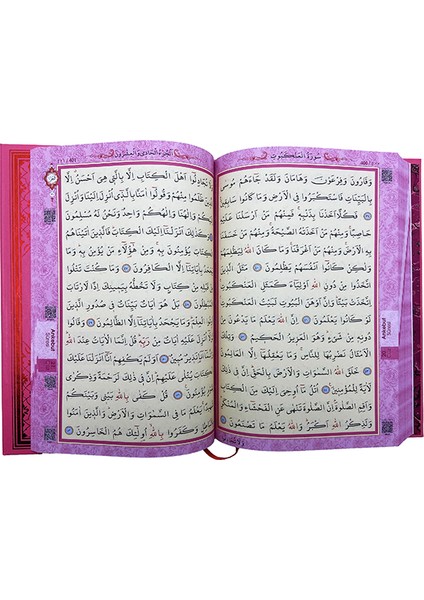 سُورَةُ الْعَنْكَبُوتِ
400
وَقَارُونَ وَفِرْعَوْنَ وَهَامَانَ وَلَقَدْ جَاءَهُمْ مُوسٰى
بِالْبَيِّنَاتِ فَاسْتَكْبَرُوا فِي الْاَرْضِ وَمَا كَانُوا سَابِقِينَ
فَكُلًّا اَخَذْنَا بِذَنْبِهِ فَمِنْهُمْ مَنْ اَرْسَلْنَا عَلَيْهِ
حَاصِبًا وَمِنْهُمْ مَنْ اَخَذَتْهُ الصَّيْحَةُ وَمِنْهُمْ مَنْ خَسَفْنَا
بِهِ الْاَرْضَ وَمِنْهُمْ مَنْ اَغْرَقْنَا وَمَا كَانَ اللهُ لِيَظْلِمَهُمْ
وَلٰكِنْ كَانُوا اَنْفُسَهُمْ يَظْلِمُونَ مَثَلُ الَّذِينَ
اتَّخَذُوا مِنْ دُونِ اللهِ اَوْلِيَاءَ كَمَثَلِ الْعَنْكَبُوتِ
اِتَّخَذَتْ بَيْتًا وَاِنَّ اَوْهَنَ الْبُيُوتِ لَبَيْتُ الْعَنْكَبُوتِ
لَوْ كَانُوا يَعْلَمُونَ اِنَّ اللهَ يَعْلَمُ مَا يَدْعُونَ مِنْ
دُونِهِ مِنْ شَيْءٍ وَهُوَ الْعَزِيزُ الْحَكِيمُ وَتِلْكَ
الْاَمْثَالُ نَضْرِبُهَا لِلنَّاسِ وَمَا يَعْقِلُهَا اِلَّا الْعَالِمُونَ
خَلَقَ اللهُ السَّمٰوَاتِ وَالْاَرْضَ بِالْحَقِّ اِنَّ فِي ذٰلِكَ
لَاٰيَةً لِلْمُؤْمِنِينَ اُتْلُ مَا اُوحِيَ اِلَيْكَ مِنَ الْكِتَابِ
وَاَقِمِ الصَّلٰوةَ اِنَّ الصَّلٰوةَ تَنْهٰى عَنِ الْفَحْشَاءِ وَالْمُنْكَرِ
وَلَذِكْرُ اللهِ اَكْبَرُ وَاللهُ يَعْلَمُ مَا تَصْنَعُونَ
اَلْجُزْءُ الْحَادِي وَالْعِشْرُونَ
401
وَلَا تُجَادِلُوا اَهْلَ الْكِتَابِ اِلَّا بِالَّتِي هِيَ اَحْسَنُ اِلَّا
الَّذِينَ ظَلَمُوا مِنْهُمْ وَقُولُوا اٰمَنَّا بِالَّذِي اُنْزِلَ اِلَيْنَا وَاُنْزِلَ
اِلَيْكُمْ وَاِلٰهُنَا وَاِلٰهُكُمْ وَاحِدٌ وَنَحْنُ لَهُ مُسْلِمُونَ
وَكَذٰلِكَ اَنْزَلْنَا اِلَيْكَ الْكِتَابَ فَالَّذِينَ اٰتَيْنَاهُمُ
الْكِتَابَ يُؤْمِنُونَ بِهِ وَمِنْ هٰؤُلَاءِ مَنْ يُؤْمِنُ بِهِ وَمَا
يَجْحَدُ بِاٰيَاتِنَا اِلَّا الْكَافِرُونَ وَمَا كُنْتَ تَتْلُوا
مِنْ قَبْلِهِ مِنْ كِتَابٍ وَلَا تَخُطُّهُ بِيَمِينِكَ اِذًا لَارْتَابَ
الْمُبْطِلُونَ بَلْ هُوَ اٰيَاتٌ بَيِّنَاتٌ فِي صُدُورِ الَّذِينَ
اُوتُوا الْعِلْمَ وَمَا يَجْحَدُ بِاٰيَاتِنَا اِلَّا الظَّالِمُونَ وَقَالُوا
لَوْلَا اُنْزِلَ عَلَيْهِ اٰيَاتٌ مِنْ رَبِّهِ قُلْ اِنَّمَا الْاٰيَاتُ عِنْدَ اللهِ
وَاِنَّمَا اَنَا نَذِيرٌ مُبِينٌ اَوَلَمْ يَكْفِهِمْ اَنَّا اَنْزَلْنَا عَلَيْكَ
الْكِتَابَ يُتْلٰى عَلَيْهِمْ اِنَّ فِي ذٰلِكَ لَرَحْمَةً
وَذِكْرٰى لِقَوْمٍ يُؤْمِنُونَ قُلْ كَفٰى بِاللهِ بَيْنِي وَبَيْنَكُمْ
شَهِيدًا يَعْلَمُ مَا فِي السَّمٰوَاتِ وَالْاَرْضِ وَالَّذِينَ اٰمَنُوا
بِالْبَاطِلِ وَكَفَرُوا بِاللهِ اُولٰئِكَ هُمُ الْخَاسِرُونَ
Ankebut
Suresi